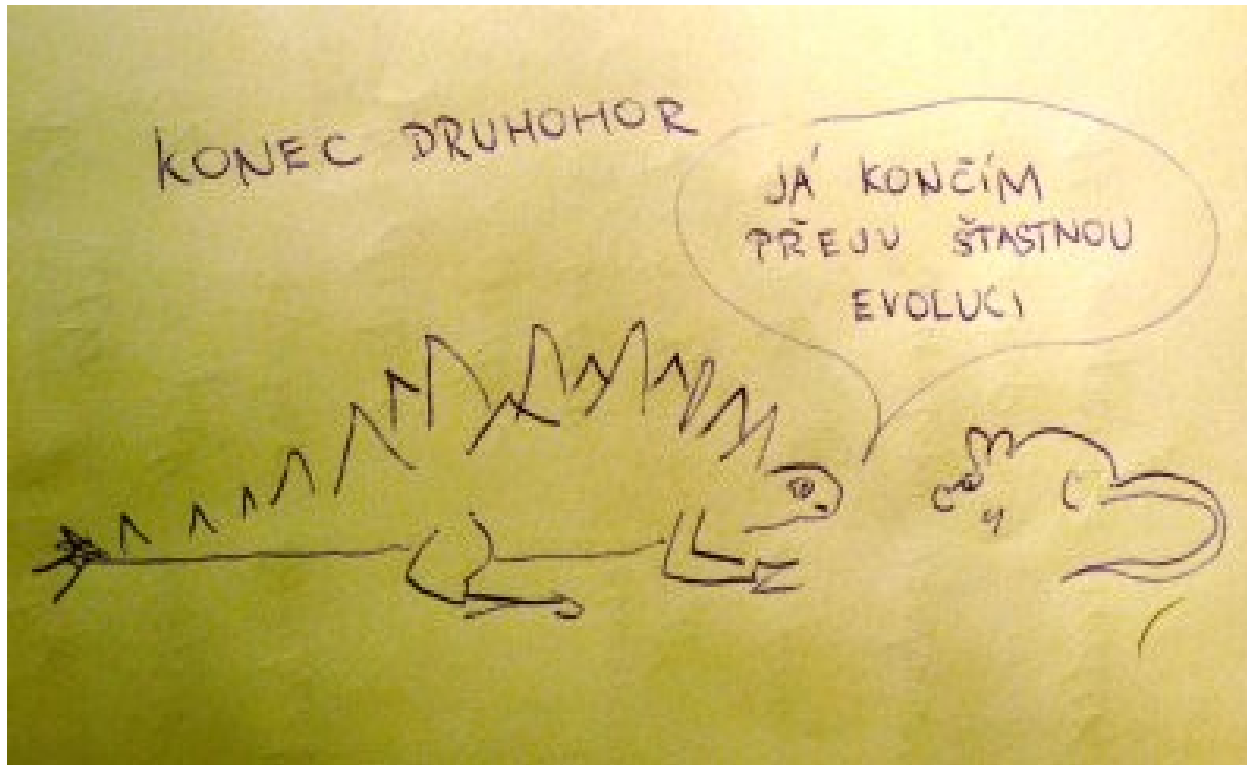 KONEC DRUHOHOR
JÁ KONČÍM
PŘEJU ŠTASTNOU
EVOLUCI